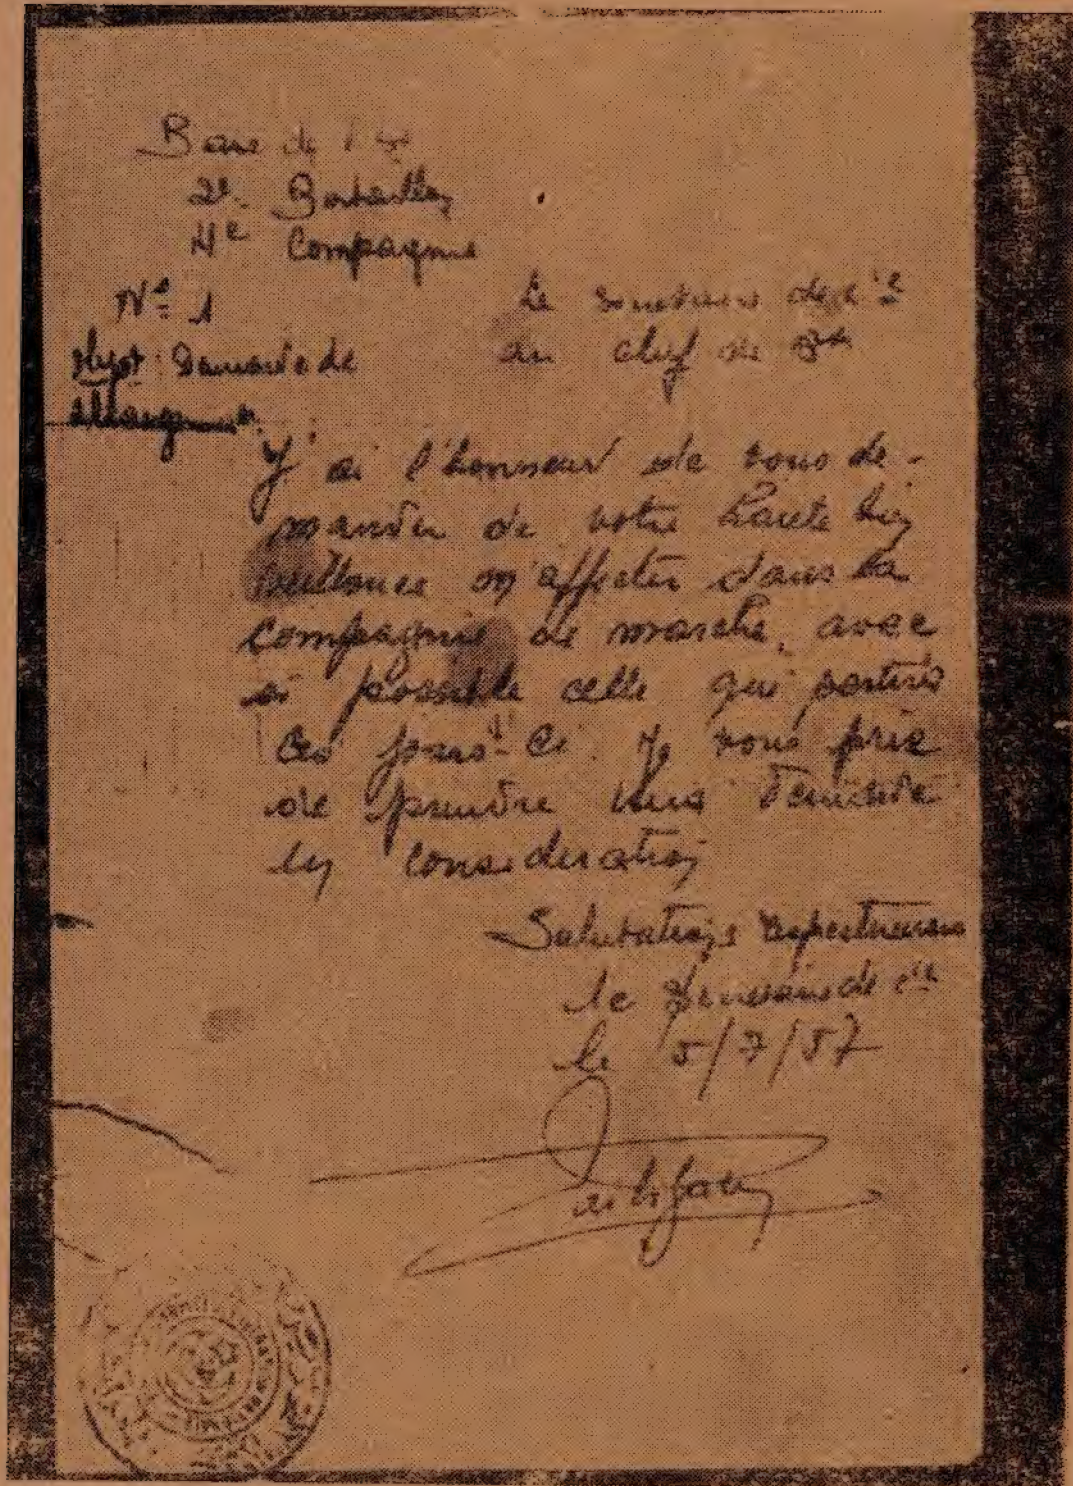 Base de l'
2e Bataillon
4e Compagnie
N° 1
Le de Cie
Objet Demande de
au chef de Bon
J'ai l'honneur de vous de-
mander de votre haute bien
veillance m'affecter dans la
compagnie de marche, avec
si possible celle qui partira
ces jours-ci. Je vous prie
de prendre ma demande
en consideration
Salutations respectueuses
le de Cie
le 5/7/57